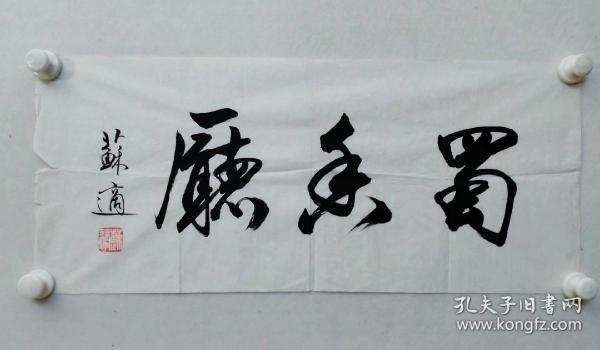 蜀香廳
蘇適
孔夫子旧書网
www.kongfz.com